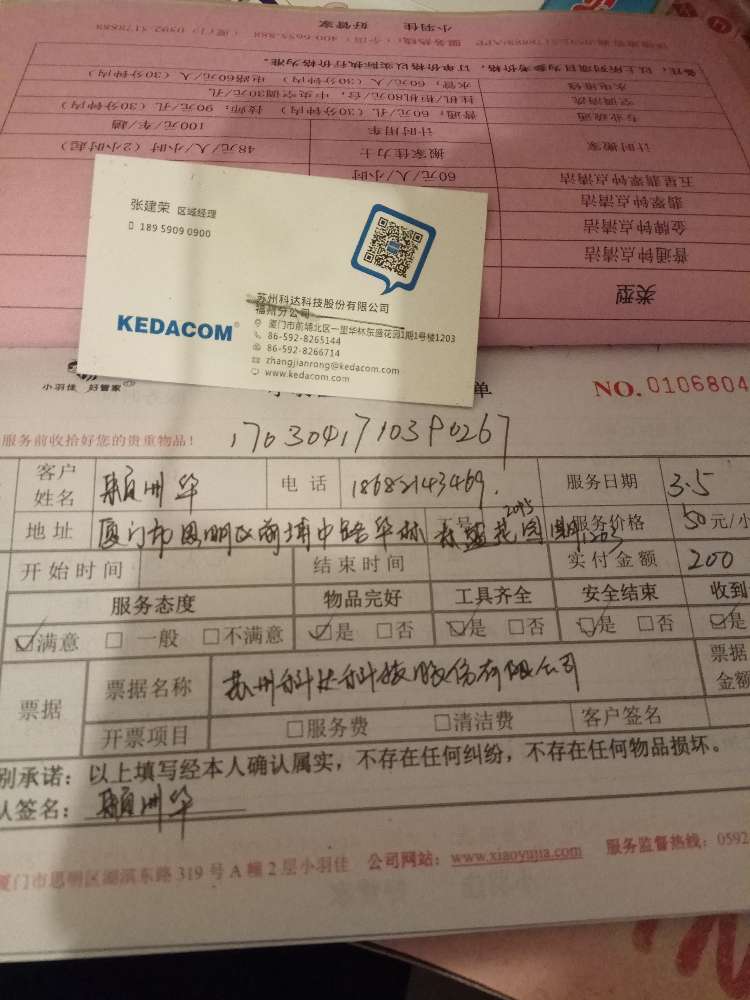 小羽佳 好管家
备注：以上所列项目为参考价格，订单价格以实际执行价格为准。
水电维修 水管：60元/人（30分钟内） 电路60元/人（30分钟内）
空调清洗 挂机/柜机80元/台，中央空调30元/孔
专业疏通 普通：60元/孔（30分钟内） 技师：90元/孔（30分钟内）
计时搬家 计时用车 100元/车/趟
搬家佳力士 48元/人/小时（2小时起）
五星翡翠钟点清洁 60元/人/小时
翡翠钟点清洁
金牌钟点清洁
普通钟点清洁
类型
张建荣 区域经理
189 5909 0900
苏州科达科技股份有限公司
福州分公司
KEDACOM
厦门市前埔北区一里华林东盛花园1期1号楼1203
86-592-8265144
86-592-8266714
zhangjianrong@kedacom.com
www.kedacom.com
小羽佳 好管家
单
NO.0106804
服务前收拾好您的贵重物品！
客户姓名 电话 18682143469. 服务日期 3.5
地址 服务价格 50元/小
开始时间 结束时间 实付金额 200
服务态度 物品完好 工具齐全 安全结束 收到
满意 一般 不满意 是 否 是 否 是 否 是
票据 票据名称 苏州科达科技股份有限公司 票据金额
开票项目 服务费 清洁费 客户签名
别承诺：以上填写经本人确认属实，不存在任何纠纷，不存在任何物品损坏。
人签名：
厦门市思明区湖滨东路319号A幢2层小羽佳 公司网站：www.xiaoyujia.com 服务监督热线：0592